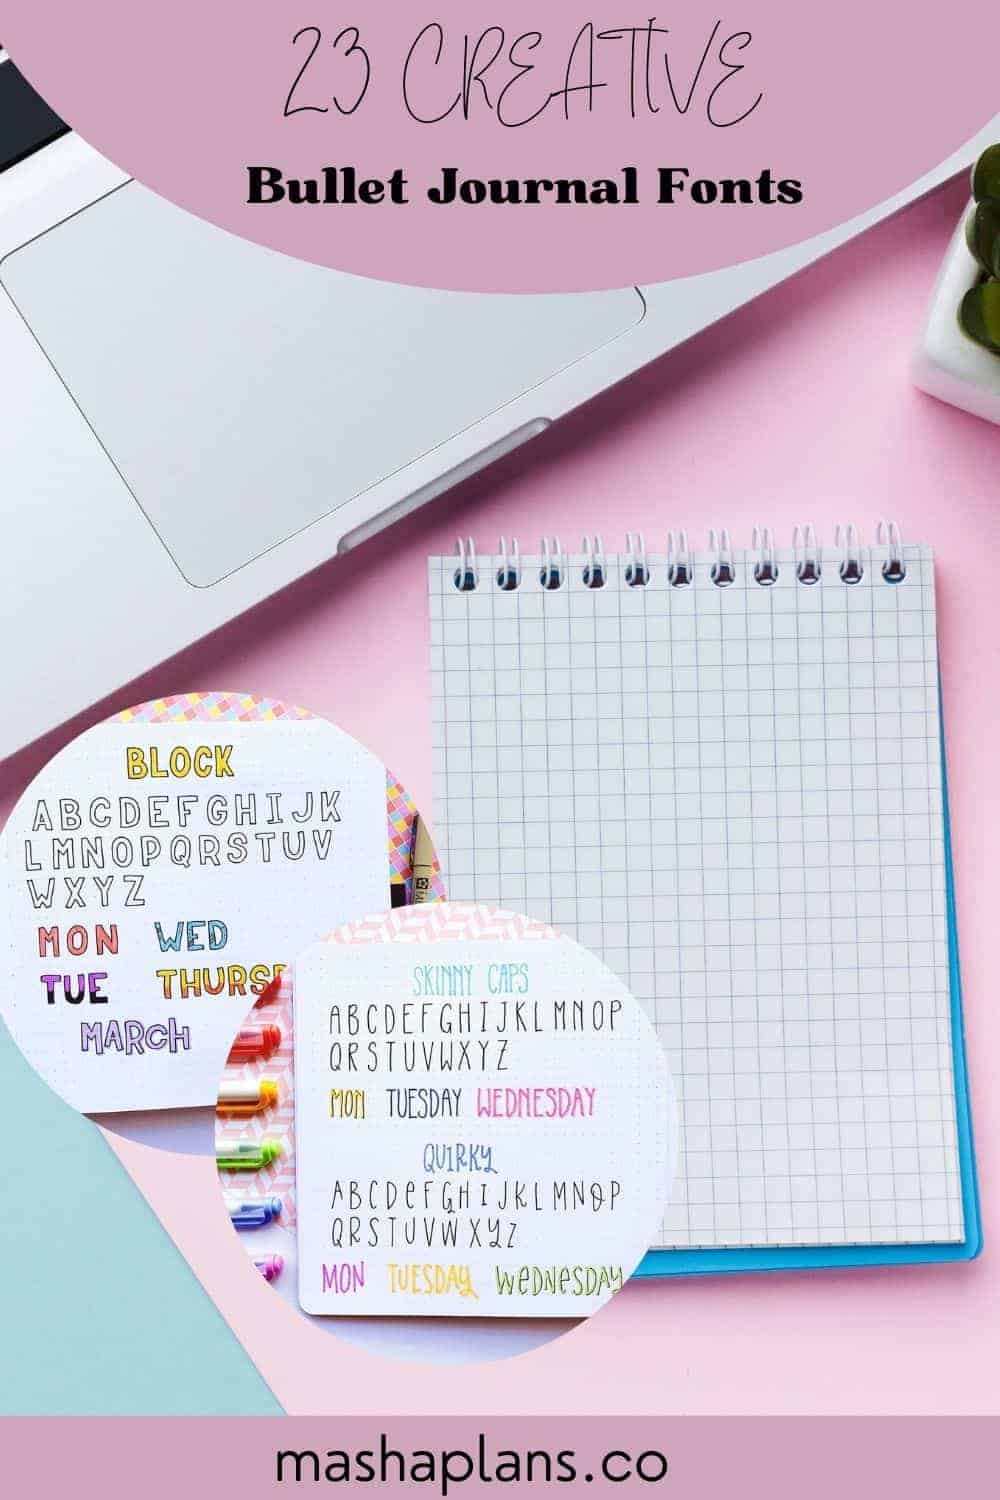 23 CREATIVE
Bullet Journal Fonts
BLOCK
ABCDEFGHIJK
LMNOPQRSTUV
WXYZ
MON WED
TUE THURS
MARCH
SKINNY CAPS
ABCDEFGHIJKLMNOP
QRSTUVWXYZ
MON TUESDAY WEDNESDAY
QUIRKY
ABCDeFGHIJKLMNOP
QRSTUVWXYZ
MON TUESDAY WeDNeSDAY
mashaplans.co